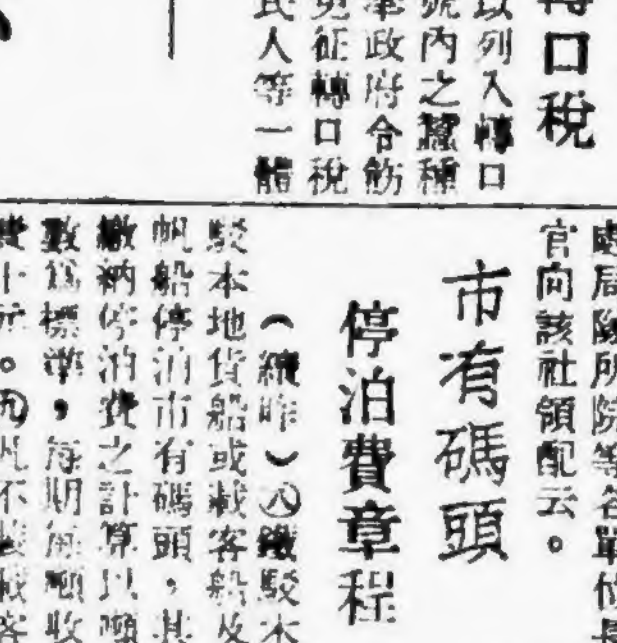 轉口稅
以列入轉口
號內之蠶種
準政府令飭
免征轉口稅
民人等一體
處局隊所院等各單位長
官向該社領配云。
市有碼頭
停泊費章程
（續昨）⑧鐵駁本
駁本地貨船或載客船及
帆船停泊市有碼頭，其
繳納停泊費之計算以噸
數爲標準，每期每噸收
費十元。⑨凡不裝載客